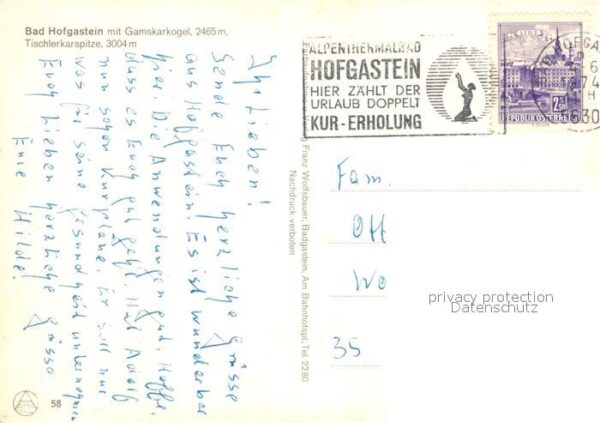 Bad Hofgastein mit Gamskarkogel, 2465 m,
Tischlerkarspitze, 3004 m
Ihr Lieben!
Sende Euch herzliche Grüsse
aus Hofgastein. Es ist wunderbar
hier. Die Anwendungen gut. Hoffe,
dass es Euch gut geht. Hat Adolf
nun schon Kurpläne. Er soll nur
was für seine Gesundheit unternehmen
Euch lieben herzliche Grüsse
Eure Hilde!
58
Franz Wolfsbauer, Badgastein, Am Bahnhofspl., Tel. 2280
Nachdruck verboten
ALPENTHERMALBAD
HOFGASTEIN
HIER ZÄHLT DER
URLAUB DOPPELT
KUR-ERHOLUNG
LINZ
2.50
REPUBLIK ÖSTERREICH
HOFGA
630
Fam.
Ott
Wo
35
privacy protection
Datenschutz